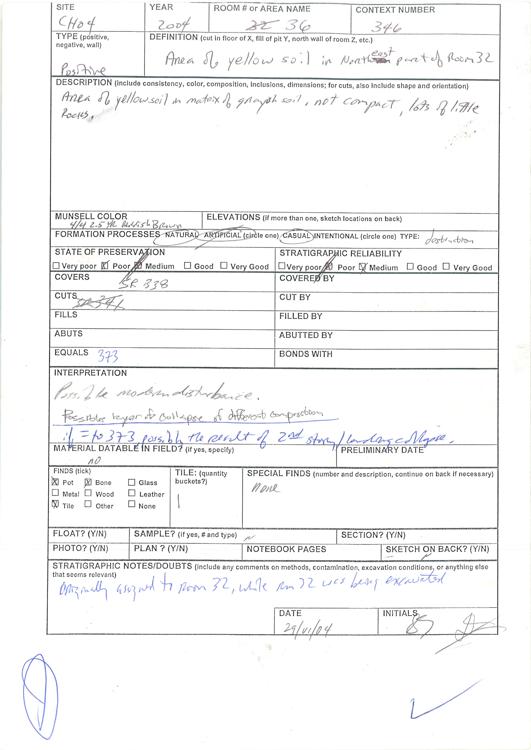 SITE YEAR ROOM # or AREA NAME CONTEXT NUMBER
CH04 2004 32 36 346
TYPE (positive, negative, wall) DEFINITION (cut in floor of X, fill of pit Y, north wall of room Z, etc.)
Positive Area of yellow soil in North east part of Room 32
DESCRIPTION (include consistency, color, composition, inclusions, dimensions; for cuts, also include shape and orientation)
Area of yellow soil in matrix of grayish soil, not compact, lots of little
rocks.
MUNSELL COLOR ELEVATIONS (if more than one, sketch locations on back)
4/4 2.5 YR Reddish Brown
FORMATION PROCESSES NATURAL ARTIFICIAL (circle one) CASUAL INTENTIONAL (circle one) TYPE: destruction
STATE OF PRESERVATION STRATIGRAPHIC RELIABILITY
Very poor Poor Medium Good Very Good Very poor Poor Medium Good Very Good
COVERS SR 338 COVERED BY
CUTS SR 341 CUT BY
FILLS FILLED BY
ABUTS ABUTTED BY
EQUALS 373 BONDS WITH
INTERPRETATION
Possible modern disturbance.
Possible layer of collapse of different composition
if = to 373 possibly the result of 2nd story/landing collapse.
MATERIAL DATABLE IN FIELD? (if yes, specify) PRELIMINARY DATE
no
FINDS (tick) TILE: (quantity buckets?) SPECIAL FINDS (number and description, continue on back if necessary)
Pot Bone Glass 1 none
Metal Wood Leather
Tile Other None
FLOAT? (Y/N) SAMPLE? (if yes, # and type) SECTION? (Y/N)
PHOTO? (Y/N) PLAN ? (Y/N) NOTEBOOK PAGES SKETCH ON BACK? (Y/N)
STRATIGRAPHIC NOTES/DOUBTS (include any comments on methods, contamination, excavation conditions, or anything else
that seems relevant)
Originally assigned to Room 32, while Rm 32 was being excavated
DATE INITIALS
29/VI/04